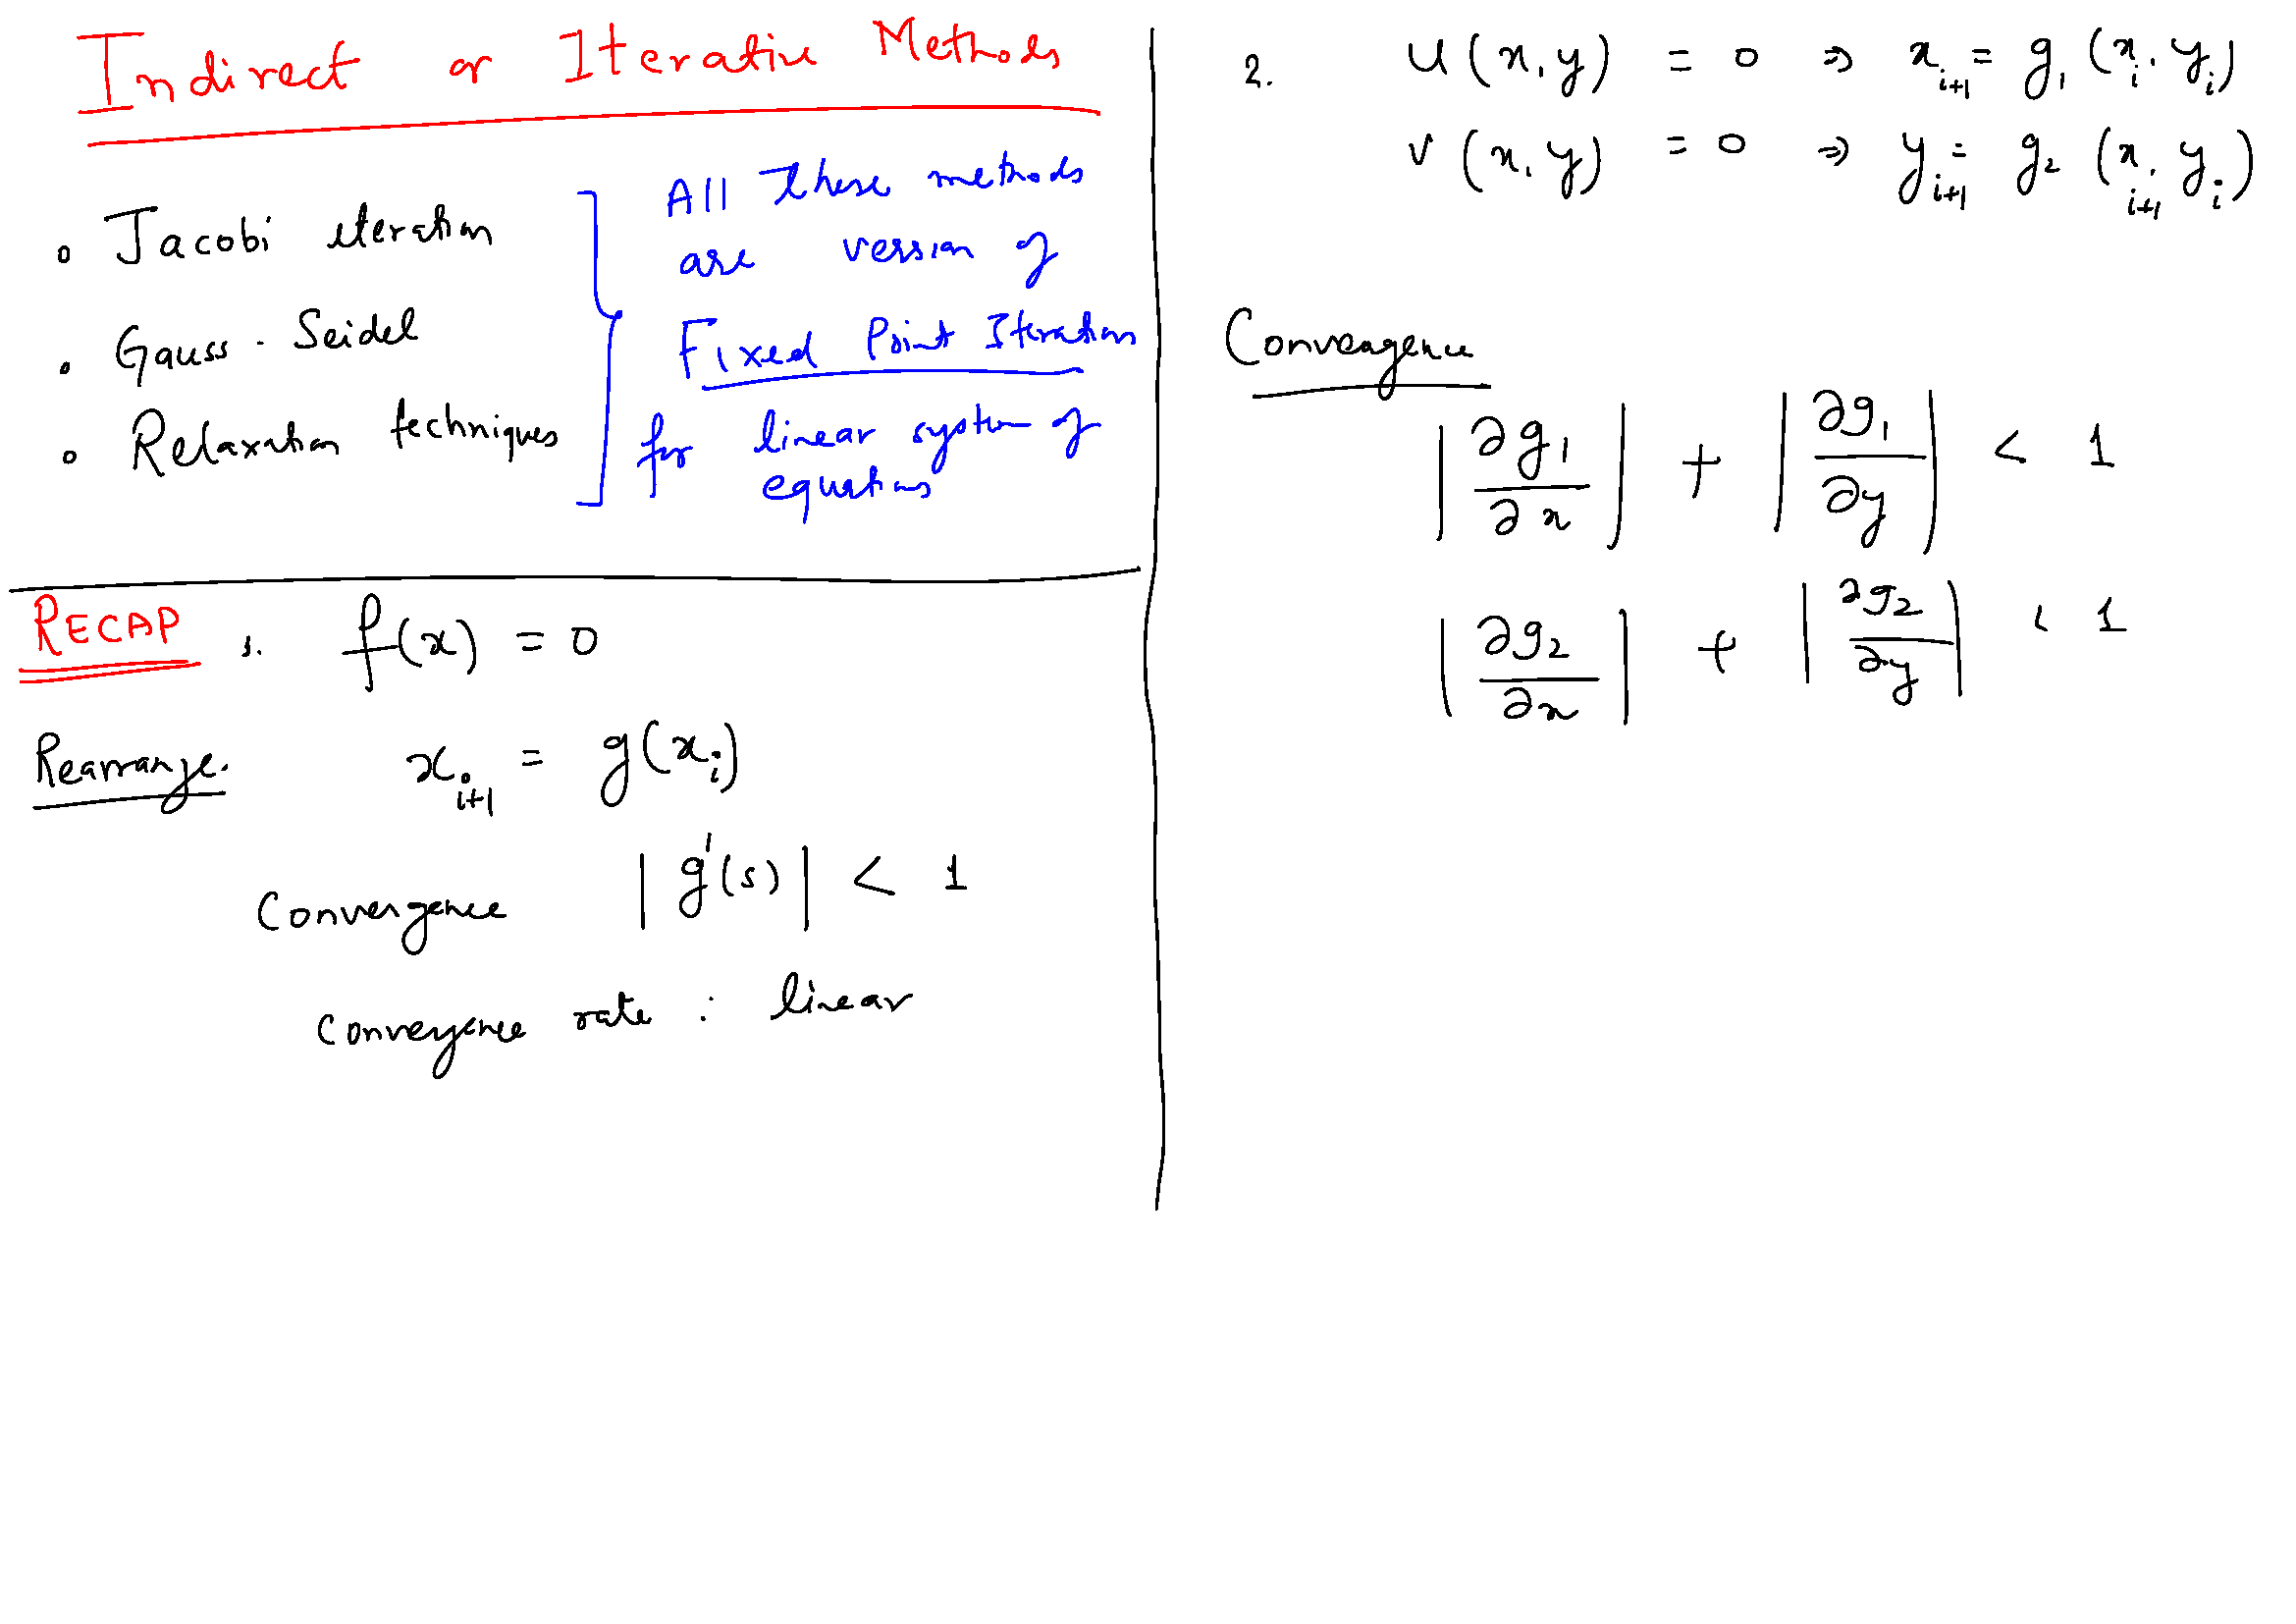 Indirect or Iterative Methods
• Jacobi iteration
• Gauss-Seidel
• Relaxation techniques
All these methods
are version of
Fixed Point Iteration
for linear system of
equations
RECAP 1. f(x) = 0
Rearrange. x_{i+1} = g(x_i)
Convergence |g'(s)| < 1
Convergence rate : linear
2. u(x, y) = 0 ⇒ x_{i+1} = g₁(x_i, y_i)
v(x, y) = 0 ⇒ y_{i+1} = g₂(x_{i+1}, y_i)
Convergence
|∂g₁/∂x| + |∂g₁/∂y| < 1
|∂g₂/∂x| + |∂g₂/∂y| < 1